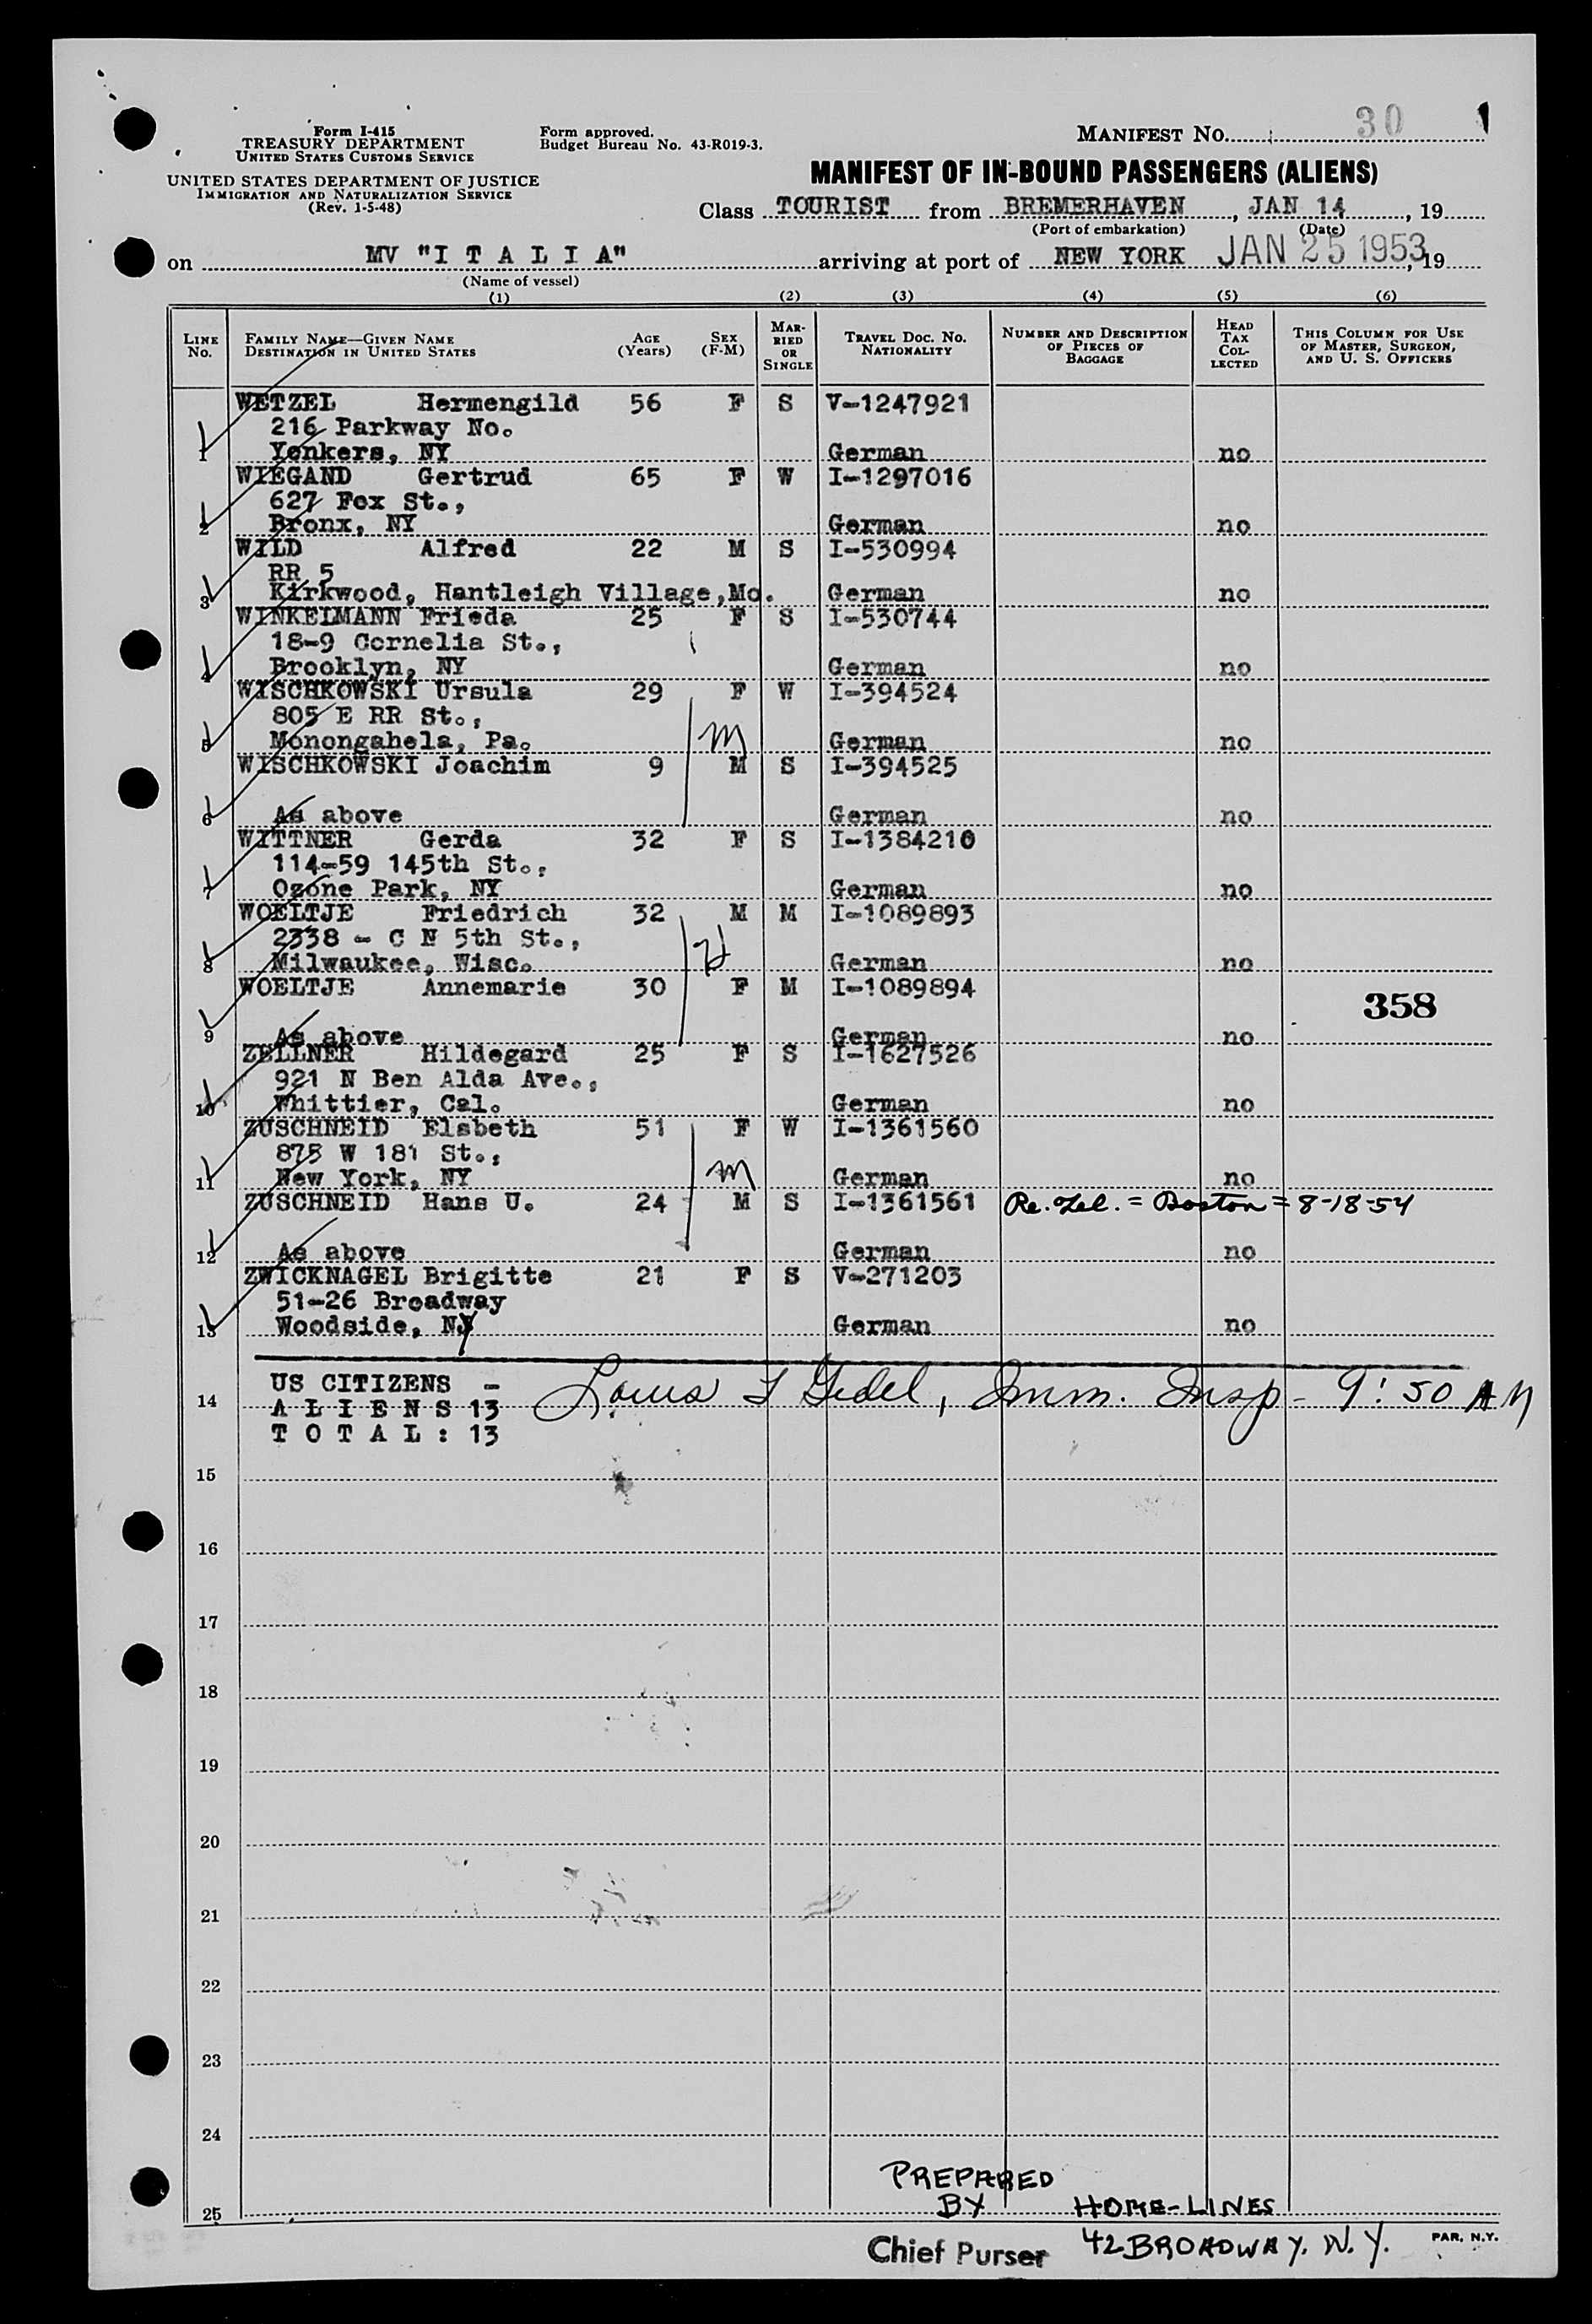 Form I-415
TREASURY DEPARTMENT
UNITED STATES CUSTOMS SERVICE
UNITED STATES DEPARTMENT OF JUSTICE
IMMIGRATION AND NATURALIZATION SERVICE
(Rev. 1-5-48)
Form approved.
Budget Bureau No. 43-R019-3.
MANIFEST NO. 30
MANIFEST OF IN-BOUND PASSENGERS (ALIENS)
Class TOURIST from BREMERHAVEN, JAN 14, 19
(Port of embarkation) (Date)
on MV "I T A L I A" arriving at port of NEW YORK JAN 25 1953, 19
(Name of vessel)
(1) (2) (3) (4) (5) (6)
LINE No. FAMILY NAME—GIVEN NAME DESTINATION IN UNITED STATES AGE (Years) SEX (F-M) MARRIED OR SINGLE TRAVEL DOC. NO. NATIONALITY NUMBER AND DESCRIPTION OF PIECES OF BAGGAGE HEAD TAX COLLECTED THIS COLUMN FOR USE OF MASTER, SURGEON, AND U. S. OFFICERS
WETZEL Hermengild 56 F S V-1247921
216 Parkway No.
1 Yonkers, NY German no
WIEGAND Gertrud 65 F W I-1297016
627 Fox St.,
2 Bronx, NY German no
WILD Alfred 22 M S I-530994
RR 5
3 Kirkwood, Hantleigh Village, Mo. German no
WINKELMANN Frieda 25 F S I-530744
18-9 Cornelia St.,
4 Brooklyn, NY German no
WISCHKOWSKI Ursula 29 F W I-394524
805 E RR St.,
5 Monongahela, Pa. m German no
WISCHKOWSKI Joachim 9 M S I-394525
6 As above German no
WITTNER Gerda 32 F S I-1384210
114-59 145th St.,
7 Ozone Park, NY German no
WOELTJE Friedrich 32 M M I-1089893
2338 - C N 5th St.,
8 Milwaukee, Wisc. German no
WOELTJE Annemarie 30 F M I-1089894
358
9 As above German no
ZELLNER Hildegard 25 F S I-1627526
921 N Ben Alda Ave.,
10 Whittier, Cal. German no
ZUSCHNEID Elsbeth 51 F W I-1361560
875 W 181 St.,
11 New York, NY m German no
ZUSCHNEID Hans U. 24 M S I-1361561 Re. = Boston = 8-18-54
12 As above German no
ZWICKNAGEL Brigitte 21 F S V-271203
51-26 Broadway
13 Woodside, NY German no
US CITIZENS -
14 A L I E N S 13 Louis, Imm. Insp - 9:50 AM
T O T A L : 13
15
16
17
18
19
20
21
22
23
24
PREPARED
25 BY HOME-LINES
Chief Purser 42 BROADWAY, N.Y. PAR, N.Y.